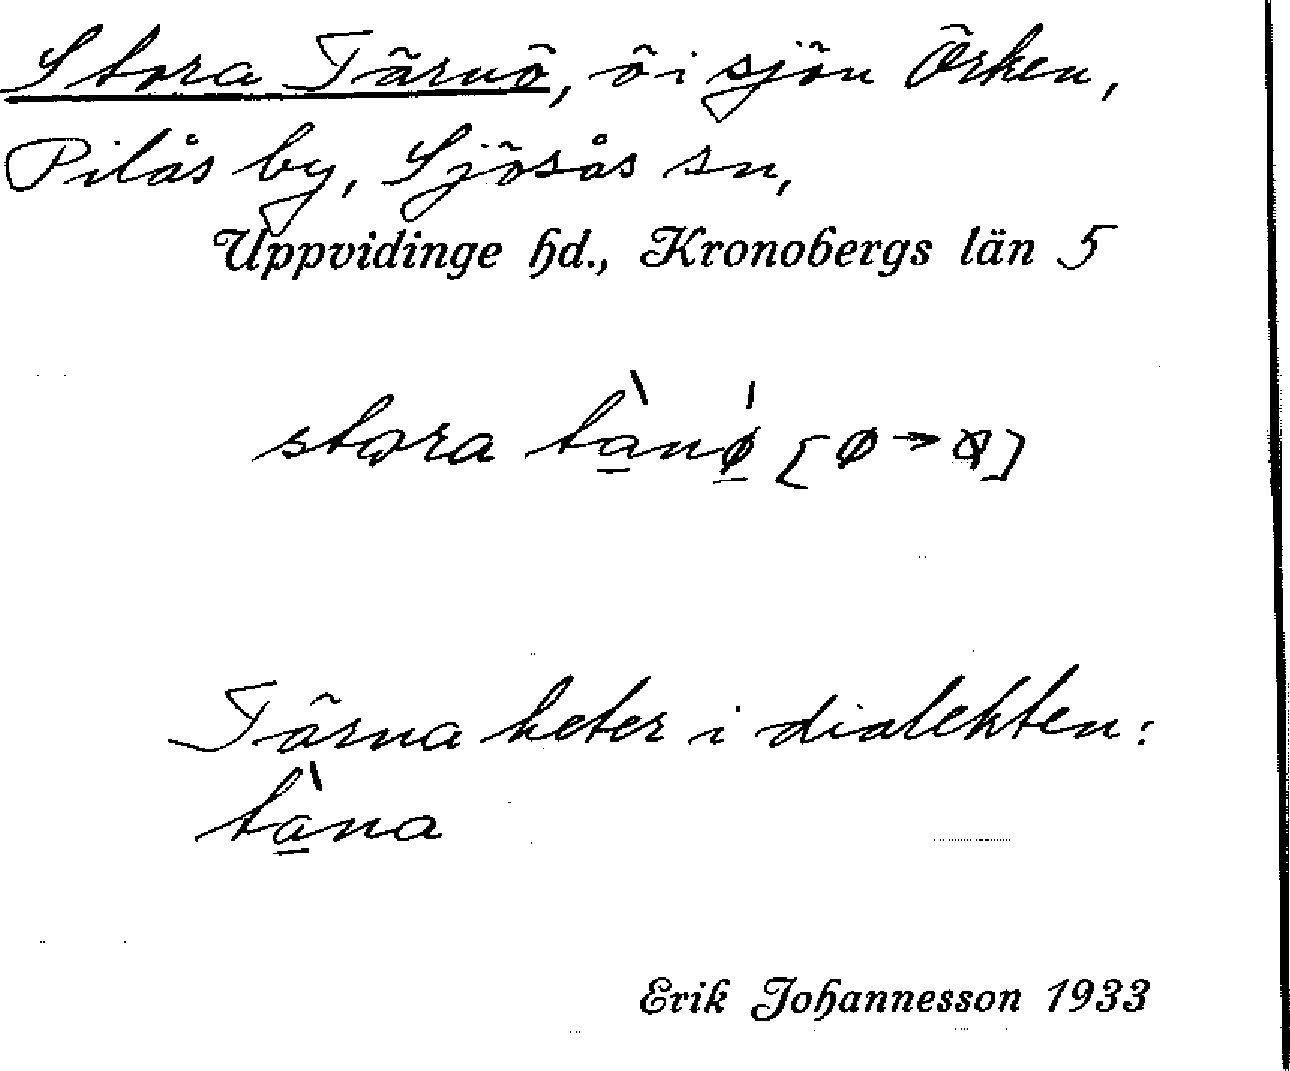 Stora Tärnö, ö i sjön Örken,
Pilås by, Sjösås sn,
Uppvidinge hd., Kronobergs län 5
stora tà̱nǿ̱ [ø → ]
Tärna heter i dialekten:
tà̱na
Erik Johannesson 1933